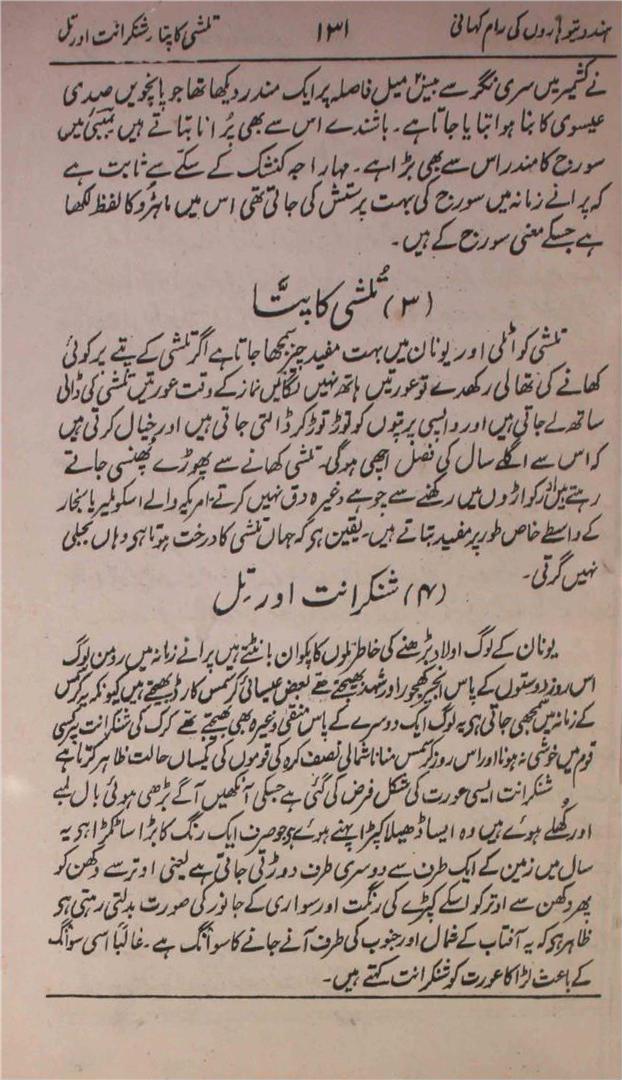 ہندو تیوہاروں کی رام کہانی ۱۳۱ تلشی کا پتا، شنکرانت اور تل
نے کشمیر میں سری نگر سے بیس میل فاصلہ پر ایک مندر دیکھا تھا جو پانچویں صدی
عیسوی کا بنا ہوا بتایا جاتا ہے۔ باشندے اس سے بھی پرانا بتاتے ہیں بمبئی میں
سورج کا مندر اس سے بھی بڑا ہے۔ مہاراجہ کنشک کے سکے سے ثابت ہے
کہ پرانے زمانہ میں سورج کی بہت پرستش کی جاتی تھی اس میں ماہرو کا لفظ لکھا
ہے جسکے معنی سورج کے ہیں۔
(۳) تُلشی کا پتَّا
تلشی کو اٹلی اور یونان میں بہت مفید چیز سمجھا جاتا ہے اگر تلشی کے پتے پر کوئی
کھانے کی تھالی رکھدے تو عورتیں ہاتھ نہیں لگاتیں نماز کے وقت عورتیں تلشی کی ڈالی
ساتھ لے جاتی ہیں اور واپسی پر پتوں کو توڑ توڑ کر ڈالتی جاتی ہیں اور خیال کرتی ہیں
کہ اس سے اگلے سال کی فصل اچھی ہوگی۔ تلشی کھانے سے پھوڑے پھنسی جاتے
رہتے ہیں اور کواڑوں میں رکھنے سے چوہے وغیرہ دق نہیں کرتے۔ امریکہ والے اسکو ملیریا بخار
کے واسطے خاص طور پر مفید بتاتے ہیں۔ یقین ہو کہ جہاں تلشی کا درخت ہوتا ہو وہاں بجلی
نہیں گرتی۔
(۴) شنکرانت اور تِل
یونان کے لوگ اولاد بڑھنے کی خاطر تلوں کا پکوان بانٹتے ہیں پرانے زمانہ میں رومن لوگ
اس روز دوستوں کے پاس انجیر کھجور اور شہد بھیجتے تھے بعض عیسائی کرسمس کارڈ بھیجتے ہیں کیونکہ یہ کرسمس
کے زمانہ میں سمجھی جاتی ہو یہ لوگ ایک دوسرے کے پاس منقی وغیرہ بھی بھیجتے تھے کرک کی شنکرانت پر کسی
قوم میں خوشی نہ ہونا اور اس روز کرسمس منانا شمالی نصف کرہ کی قوموں کی یکساں حالت ظاہر کرتا ہے
شنکرانت ایسی عورت کی شکل فرض کی گئی ہے جسکی آنکھیں آگے بڑھی ہوئی بال لمبے
اور کھلے ہوئے ہیں وہ ایسا ڈھیلا کپڑا پہنے ہوئے ہو جو صرف ایک رنگ کا بڑا سا ٹکڑا ہو یہ
سال میں زمین کے ایک طرف سے دوسری طرف دوڑتی جاتی ہے یعنی اوتر سے دکھن کو
پھر دکھن سے اوتر کو اسکے کپڑے کی رنگت اور سواری کے جانور کی صورت بدلتی رہتی ہو
ظاہر ہو کہ یہ آفتاب کے شمال اور جنوب کی طرف آنے جانے کا سوانگ ہے۔ غالباً اسی سوانگ
کے باعث لڑاکا عورت کو شنکرانت کہتے ہیں۔